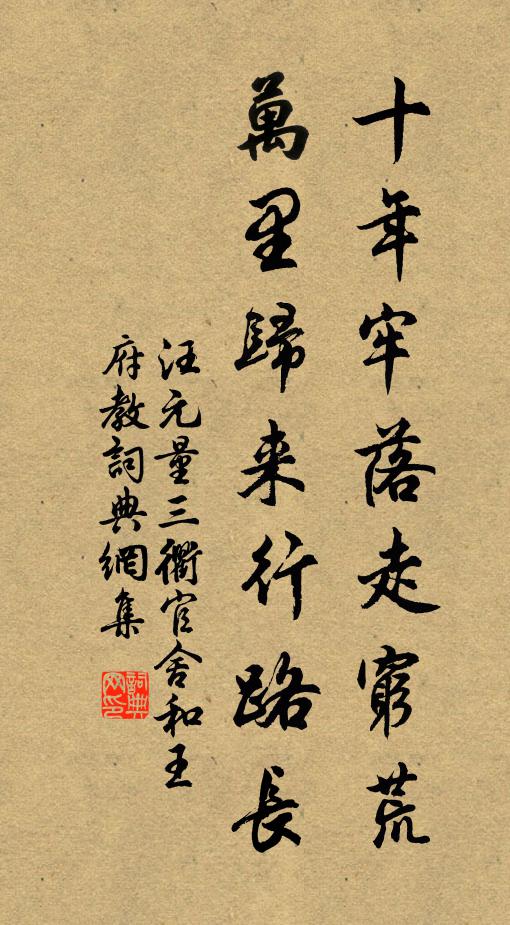 十年牢落走窮荒
萬里歸来行路長
汪元量三衢官舍和王
府教詞典網集
詞典網印